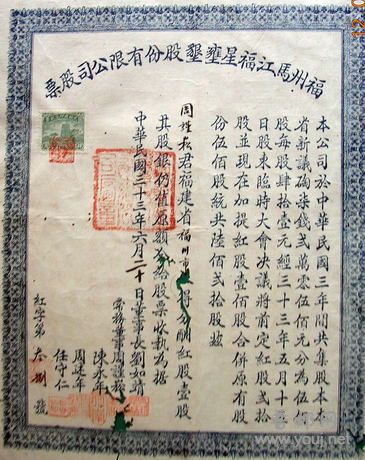 福州馬江福星壅墾股份有限公司股票
本公司於中華民國三年間共集股本本
省新議柒錢貳萬零伍佰元分為伍佰
股每股肆拾壹元經三十三年五月十三
日股東臨時大會決議將前定紅股貳拾
股並現在加提紅股壹佰股合併原有股
份伍佰股統共陸佰貳拾股茲
周松君福建省福州市將分酬紅股壹股
其股銀仍值原額合給股票收執為据
中華民國三十三年六月二十日董事長劉如靖
常務董事周謹松
陳永年
周建年
任守仁
紅字第叁捌號
www.youj.net